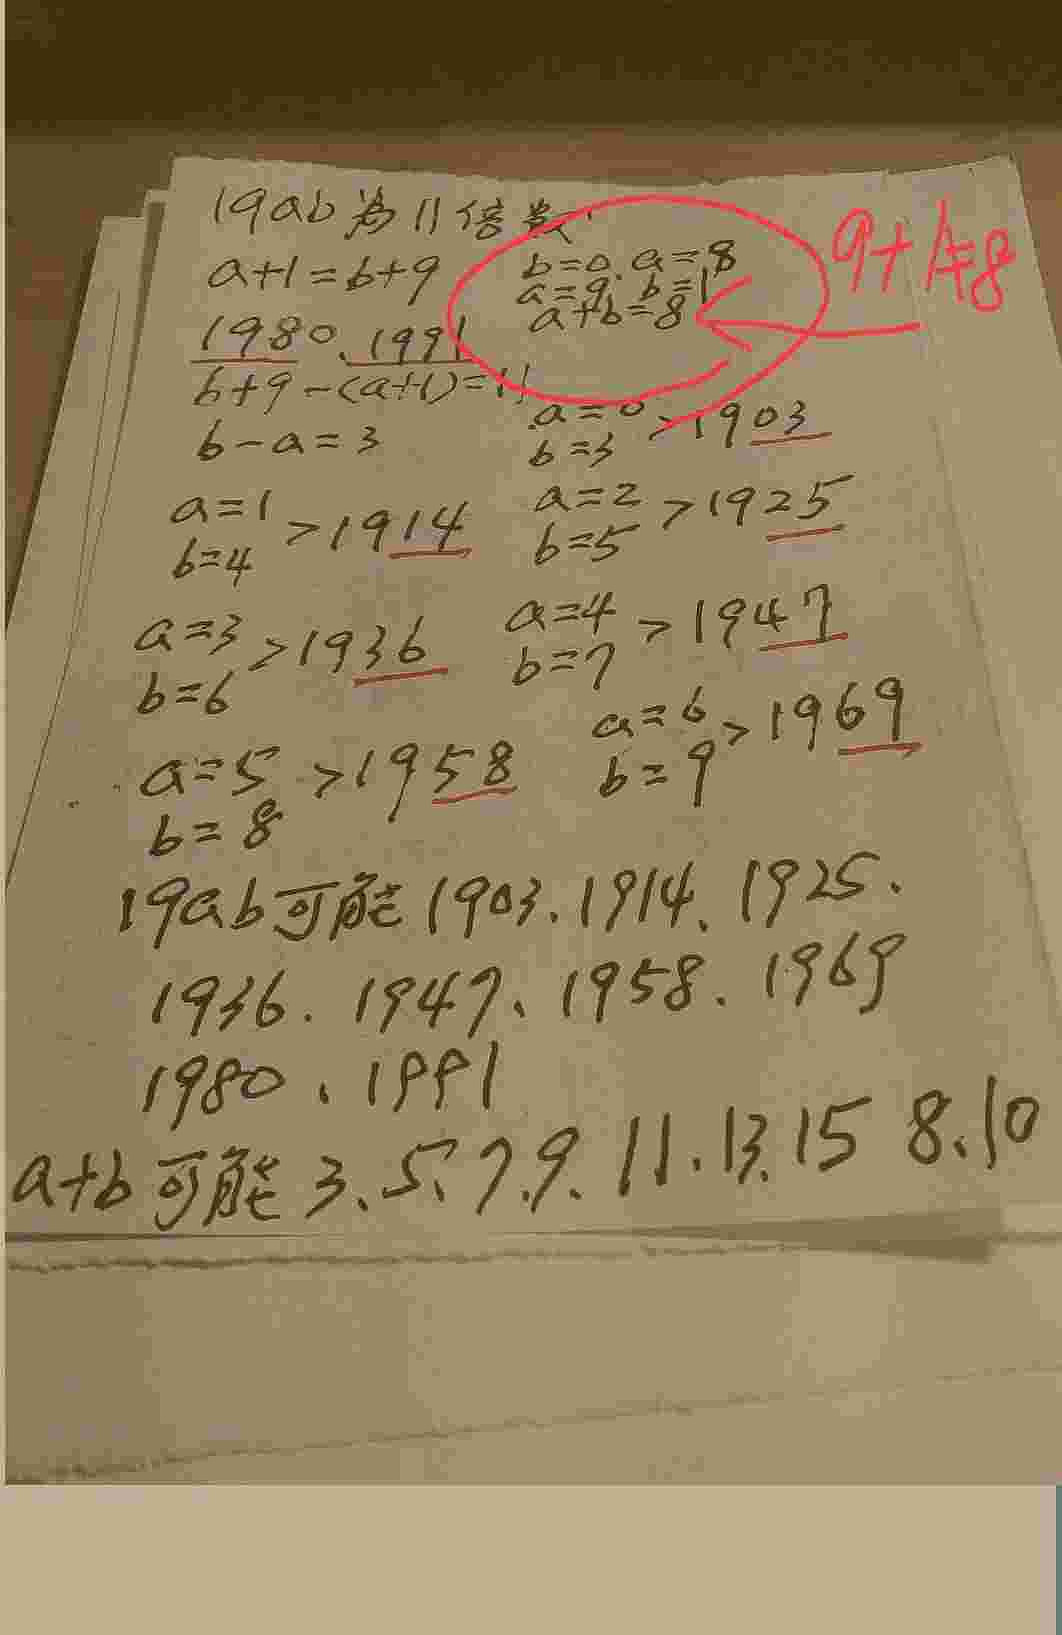 19ab為11倍數
a+1=b+9
b=0、a=8
a=9、b=1
a+b=8
9+1≠8
1980、1991
b+9-(a+1)=11
b-a=3
a=0
b=3 >1903
a=1
b=4 >1914
a=2
b=5 >1925
a=3
b=6 >1936
a=4
b=7 >1947
a=5
b=8 >1958
a=6
b=9 >1969
19ab可能1903、1914、1925、
1936、1947、1958、1969
1980、1991
a+b可能3、5、7、9、11、13、15 8、10